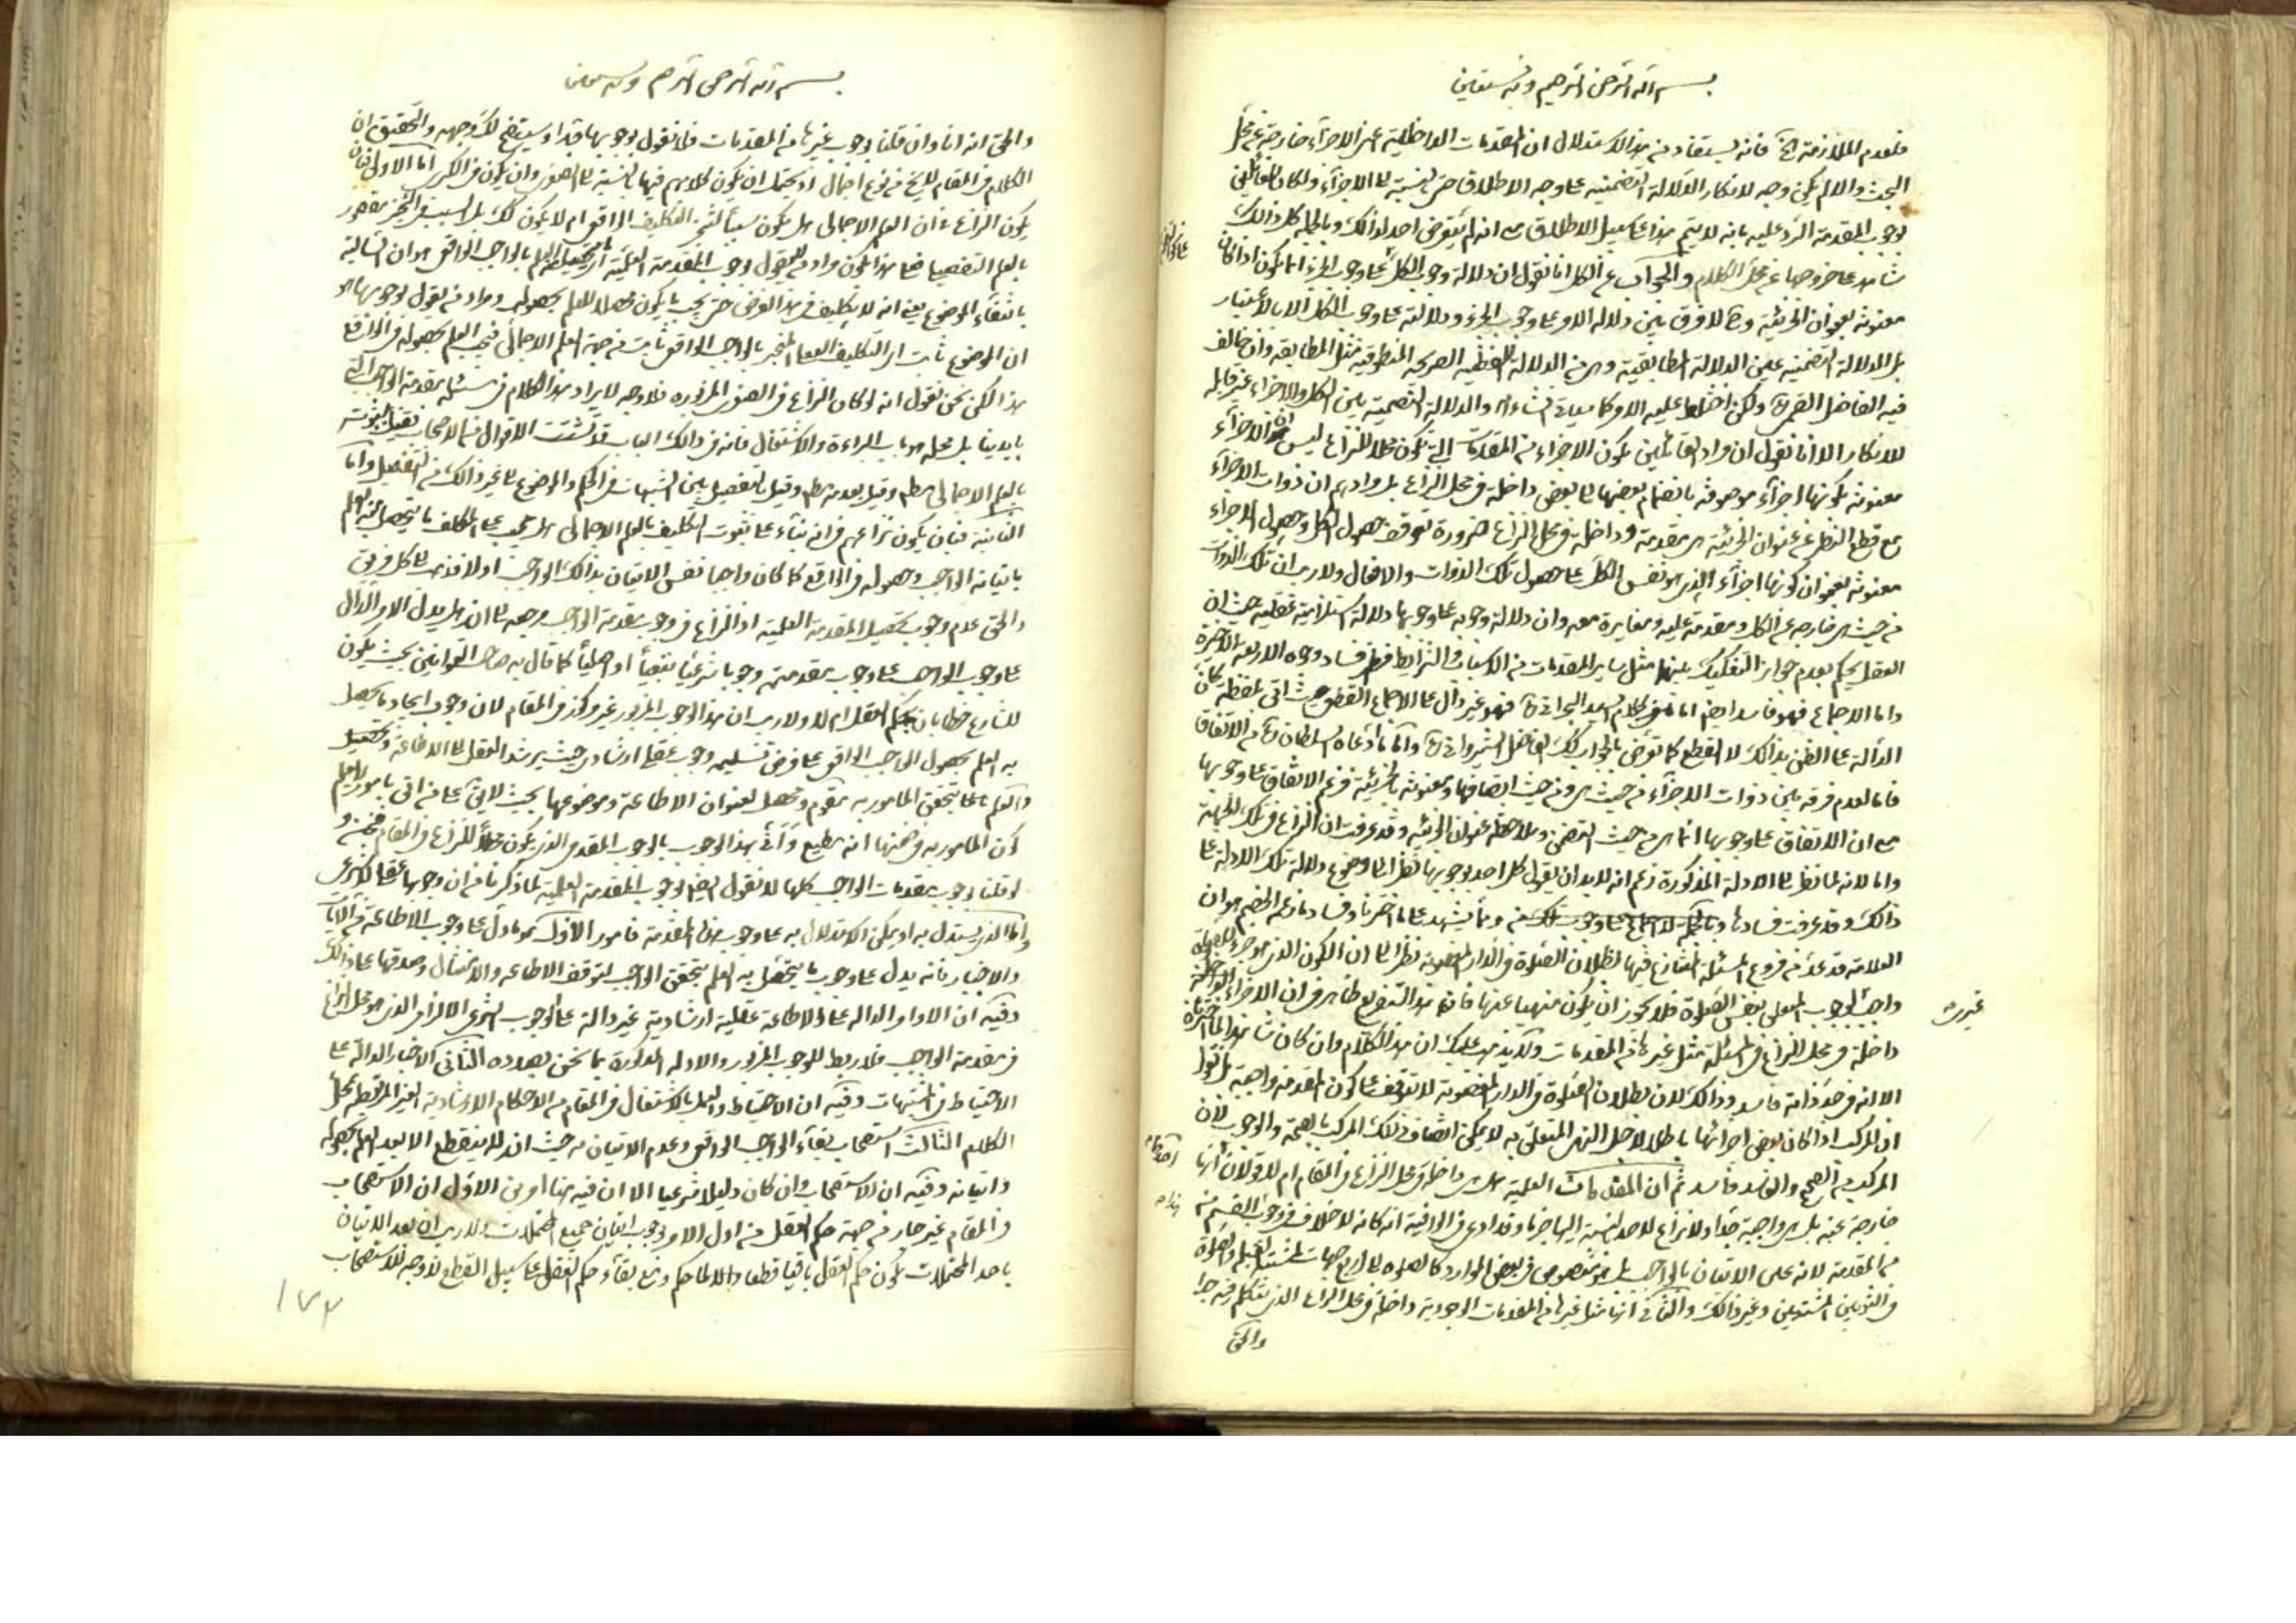 بسم الله الرحمن الرحيم وبه نستعين
فلعدم الملازمة فانه يستفاد من هذا الاستدلال ان المقدمات الداخلية اعنى الاجزاء خارجة عن محل
البحث والا لم يكن وجه لانكار الدلالة التضمنية على وجه الاطلاق حتى بالنسبة الى الاجزاء ولكان للقائلين
بوجوب المقدمة الرد عليه بانه لا يتم هذا على سبيل الاطلاق مع انه لم يتعرض احد لذلك وبالجملة كل ذلك
شاهد على خروجها عن محل الكلام والجواب عن الكل انا نقول ان دلالة وجوب الكل على وجوب الجزء انما يكون اذا كان
معنونة بعنوان الجزئية و لا فرق بين دلالة الامر على وجوب الجزء ودلالته على وجوب الكل الا بالاعتبار
بل الدلالة التضمنية عين الدلالة المطابقية وهى من الدلالة اللفظية الصريحة المنطوقية مثل المطابقة وان خالف
فيه الفاضل القمى ولكن اختلط عليه الامر كما سياتى انشاء الله والدلالة التضمنية بين الكل والاجزاء غير قابلة
للانكار الا انا نقول ان مراد القائلين بكون الاجزاء من المقدمات التى تكون محلا للنزاع ليس ان الاجزاء
معنونة بكونها اجزاء موصوفة بانضمام بعضها الى بعض داخلة فى محل النزاع بل مرادهم ان ذوات الاجزاء
مع قطع النظر عن عنوان الجزئية هى مقدمة وداخلة فى محل النزاع ضرورة توقف حصول الكل وحصول الاجزاء
معنونة بعنوان كونها اجزاء الذى هو نفس الكل على حصول تلك الذوات والافعال ولا ريب ان تلك الذوات
من حيث هى خارجة عن الكل ومقدمة عليه ومغايرة معه وان دلالة وجوبه على وجوبها دلالة استلزامية عقلية حيث ان
العقل يحكم بعدم جواز التفكيك بينهما مثل ساير المقدمات من الاسباب والشرايط فظهر فساد وجوه الاربعة الاخيرة
واما الاجماع فهو فاسد ايضا اما كلام السيد البحرانى فهو غير دال على الاجماع القطعى حيث اتى بلفظة كان
الدالة على الظن بذلك لا القطع كما تعرض بالجواب كذلك الفاضل الشيروانى وأما ما ادعاه السلطان من الاتفاق
فاما لعدم فرقه بين ذوات الاجزاء من حيث هى ومن حيث اتصافها ومعنونة بالجزئية فزعم الاتفاق على وجوبها
مع ان الاتفاق على وجوبها انما هى من حيث التضمن وملاحظة عنوان الجزئية وقد عرفت ان النزاع فى تلك الجهة
واما لانه لما نظر الى الادلة المذكورة زعم انه لا بد ان يقول كل احد بوجوبها نظرا الى وضوح دلالة تلك الادلة على
ذلك وقد عرفت فسادها ومما يشهد على ما اخترنا وفساد ما زعم الخصم هو ان
العلامة قد عد من فروع المسئلة المتنازع فيها بطلان الصلوة فى الدار المغصوبة نظرا الى ان الكون الذى هو جزء للصلوة
واجب الوجوب المتعلق بنفس الصلوة فلا يجوز ان يكون منهيا عنها فان هذا التفريع ظاهر فى ان الاجزاء الداخلة
داخلة فى محل النزاع فى المسئلة مثل غيرها من المقدمات ولا يذهب عليك ان هذا الكلام وان كان شاهدا لما اخترناه
الا انه فى حد ذاته فاسد وذلك لان بطلان الصلوة فى الدار المغصوبة لا يتوقف على كون المقدمة واجبة بل نقول
ان المركب اذا كان بعض اجزائها باطلا لاجل النهى المتعلق به لا يمكن اتصاف ذلك المركب بالصحة والوجوب لان
المركب من الصحيح والفاسد فاسد ثم ان المقدمات العلمية هل هى داخلة فى محل النزاع فى المقام ام لا قولان
خارجة عنه بل هى واجبة جدا ولا نزاع لاحد بالنسبة اليها وقد ادعى فى الوافية انه كانه لا خلاف فى وجوب القسم
من المقدمة لانه عين الاتيان بالواجب بل هو منصوص فى بعض الموارد كالصلوة الى اربع جهات لمشتبه القبلة والصلوة
فى الثوبين المشتبهين وغير ذلك والثانى انها مثل غيرها من المقدمات الوجودية داخلة فى محل النزاع الذى يتكلم فيه
والحق
بسم الله الرحمن الرحيم وبه نستعين
والحق انه انا وان قلنا بوجوب غيرها من المقدمات فلا نقول بوجوبها جدا وسيتضح لك وجهه والتحقيق ان
الكلام فى المقام لا يخ من نوع اجمال اذ يحتمل ان يكون كلامهم فيها بالنسبة الى الصغرى وان يكون فى الكبرى اما الاولى فبان
يكون النزاع فى ان العلم الاجمالى هل يكون سببا لتنجز التكليف الواقعى ام لا يكون كذلك بل السبب فى التنجز مقصور
بالعلم التفصيلى فعلى هذا يكون مراد من يقول بوجوب المقدمة العلمية العلم بالواجب الواقعى هو ان السالبة
بانتفاء الموضوع يعنى انه لا تكليف فى هذا الفرض حتى يجب ما يكون محصلا للعلم بحصوله ومراد من يقول بوجوبها هو
ان الموضوع ثابت اى التكليف الفعلى المنجز بالواجب الواقعى ثابت من جهة العلم الاجمالى فيجب العلم بحصوله فى الواقع
هذا لكن نحن نقول انه لو كان النزاع فى الصغرى المزبورة فلا وجه لايراد هذا الكلام فى مسئلة مقدمة الواجب التى
بايدينا بل محله هو باب البراءة والاشتغال فانه فى ذلك الباب قد تشتت الاقوال من الاصحاب فقيل بثبوته
بالعلم الاجمالى مطلقا وقيل بعدمه مطلقا وقيل بالتفصيل بين الشبهات فى الحكم والموضوع الى غير ذلك من التفصيل واما
الثانية فبان يكون نزاعهم فى انه بناء على ثبوت التكليف بالعلم الاجمالى هل يجب على المكلف ما يحصل به العلم
باتيانه الواجب وحصوله فى الواقع كما كان واجبا نفس الاتيان بذلك الواجب او لا فذهب الى كل فريق
والحق عدم وجوب تحصيل المقدمة العلمية اذ النزاع فى وجوب مقدمة الواجب مرجعه الى انه هل يدل الامر الدال
على وجوب الواجب على وجوب مقدمته وجوبا شرعيا تبعيا او اصليا كما قال به صاحب القوانين بحيث يكون
للشارع خطابان بحكم العقل ام لا ولا ريب ان هذا الوجوب المزبور غير مركوز فى المقام لان وجوب ايجاد ما يحصل
به العلم بحصول الواجب الواقعى على فرض تسليمه وجوب عقلى ارشادى حيث يرشد العقل الى الاطاعة
والعلم بتحقق المامور به مقوم ومحصل لعنوان الاطاعة وموضوعها بحيث لا يق على من اتى بامور لا يعلم
كون المامور به فى ضمنها انه مطيع وانى هذا الوجوب بالوجوب المقدمى الذى يكون محلا للنزاع فى المقام
لو قلنا بوجوب مقدمات الواجب كلها لا نقول ايضا بوجوب المقدمة العلمية لما ذكرنا من ان وجوبها عقلى لا شرعى
واما الذى يستدل به او يمكن الاستدلال به على وجوب هذه المقدمة فامور الاول عموم ما دل على وجوب الاطاعة من الايات
والاخبار فانه يدل على وجوب ما يتحصل به العلم بتحقق الواجب لتوقف الاطاعة والامتثال وصدقها على ذلك
وفيه ان الاوامر الدالة على الاطاعة عقلية ارشادية غير دالة على الوجوب الشرعى الالزامى الذى هو محل النزاع
فى مقدمة الواجب فلا ربط للوجوب المزبور والادلة المذكورة بما نحن بصدده الثانى الاخبار الدالة على
الاحتياط فى المشتبهات وفيه ان الاحتياط والعمل بالاشتغال فى المقام من الاحكام الارشادية الغير المرتبطة بمحل
الكلام الثالث استصحاب بقاء الواجب الواقعى وعدم الاتيان به حيث انه لا ينقطع الا بعد العلم بحصوله
واتيانه وفيه ان الاستصحاب وان كان دليلا شرعيا الا ان فيه الاول ان الاستصحاب
فى المقام غير جار من جهة حكم العقل من اول الامر بوجوب اتيان جميع المحتملات ولا ريب ان بعد الاتيان
باحد المحتملات يكون حكم العقل باقيا قطعا والا لما حكم ومع بقاء حكم العقل على سبيل القطع لا وجه للاستصحاب